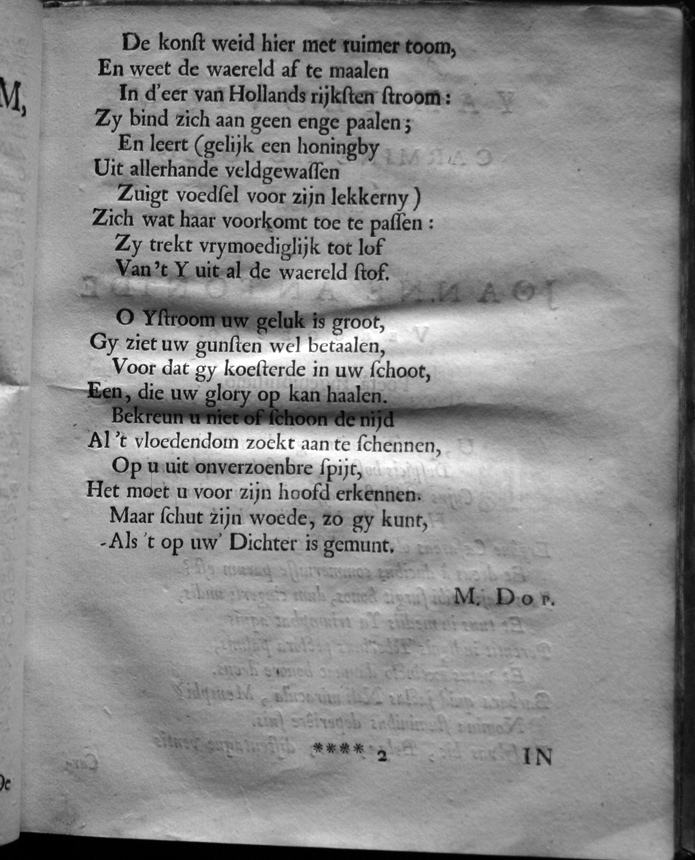 M,
De konſt weid hier met ruimer toom,
En weet de waereld af te maalen
In d'eer van Hollands rijkſten ſtroom:
Zy bind zich aan geen enge paalen;
En leert (gelijk een honingby
Uit allerhande veldgewaſſen
Zuigt voedſel voor zijn lekkerny)
Zich wat haar voorkomt toe te paſſen:
Zy trekt vrymoediglijk tot lof
Van't Y uit al de waereld ſtof.
O Yſtroom uw geluk is groot,
Gy ziet uw gunſten wel betaalen,
Voor dat gy koeſterde in uw ſchoot,
Een, die uw glory op kan haalen.
Bekreun u niet of ſchoon de nijd
Al 't vloedendom zoekt aan te ſchennen,
Op u uit onverzoenbre ſpijt,
Het moet u voor zijn hoofd erkennen.
Maar ſchut zijn woede, zo gy kunt,
Als 't op uw' Dichter is gemunt.
M. Dop.
**** 2 IN